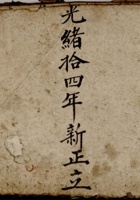 光緒拾四年新正立